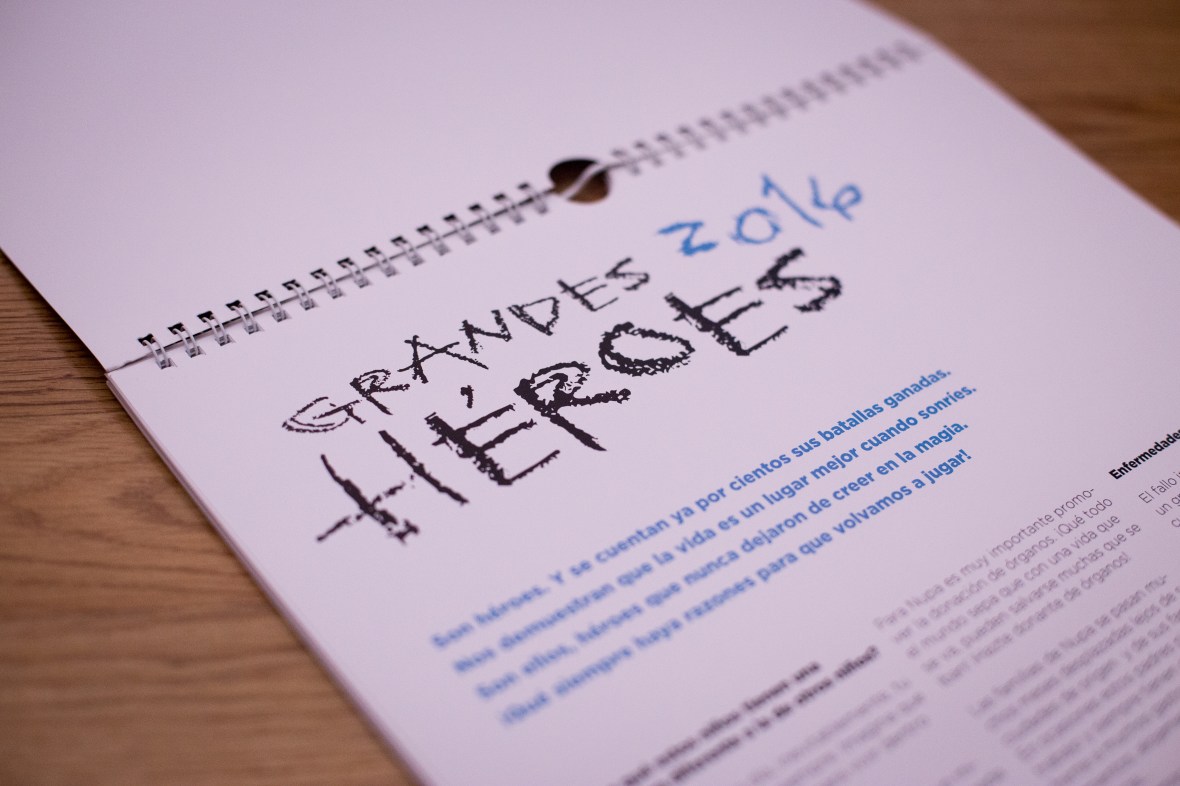 GRANDES 2016
HÉROES
Son héroes. Y se cuentan ya por cientos sus batallas ganadas.
Nos demuestran que la vida es un lugar mejor cuando sonríes.
Son ellos, héroes que nunca dejaron de creer en la magia.
¡Que siempre haya razones para que volvamos a jugar!
estos niños tienen una
diferente a la de otros niños?
Para Nupa es muy importante promo-
ver la donación de órganos. ¡Qué todo
el mundo sepa que con una vida que
se va, pueden salvarse muchas que se
quedan! Hazte donante de órganos!
Las familias de Nupa se pasan mu-
chos meses desplazadas lejos de
Enfermedades
El fallo
un